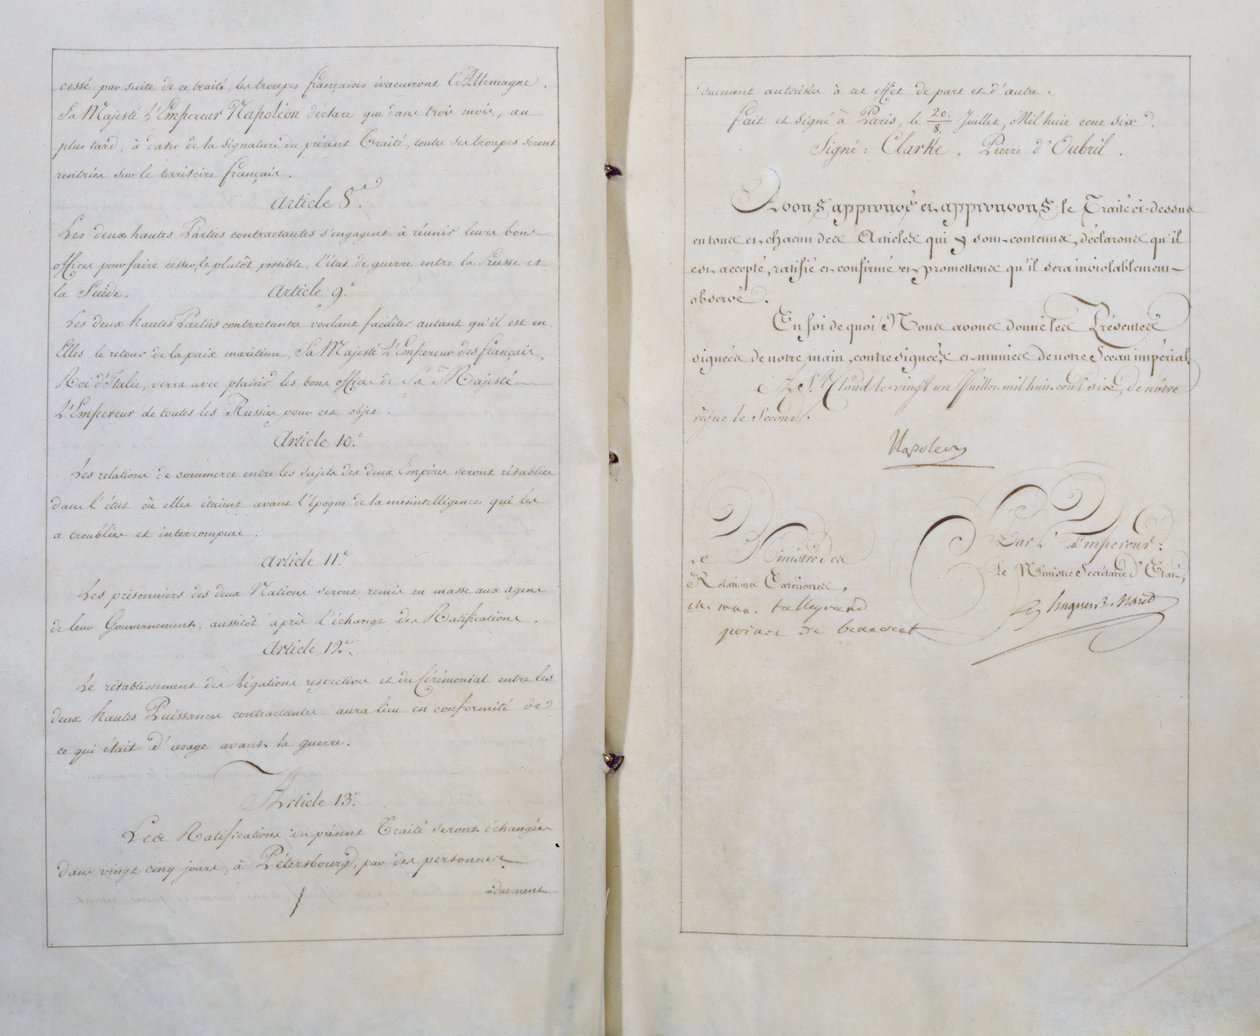 cessé par suite de ce traité, les troupes françaises évacueront l'Allemagne.
Sa Majesté L'Empereur Napoléon déclare que dans trois mois, au
plus tard, à dater de la signature du présent Traité, toutes ses troupes seront
rentrées sur le territoire français.
Article 8.e
Les deux hautes Parties contractantes s'engagent à réunir leurs bons
offices pour faire cesser, le plutôt possible, l'état de guerre entre la Prusse et
la Suède.
Article 9.e
Les deux hautes Parties contractantes voulant faciliter autant qu'il est en
Elles le retour de la paix maritime, Sa Majesté L'Empereur des français,
Roi d'Italie, verra avec plaisir les bons offices de Sa Majesté
L'Empereur de toutes les Russies pour cet objet.
Article 10.e
Les relations de commerce entre les sujets des deux Empires seront rétablies
dans l'état où elles étaient avant l'époque de la mésintelligence qui les
a troublées et interrompues.
Article 11.e
Les prisonniers des deux Nations seront remis en masse aux agens
de leur Gouvernement, aussitôt après l'échange des Ratifications.
Article 12.e
Le rétablissement des Légations respectives et du Cérémonial entre les
deux hautes Puissances contractantes aura lieu en conformité de
ce qui était d'usage avant la guerre.
Article 13.e
Les Ratifications du présent Traité seront échangées
dans vingt cinq jours, à Pétersbourg, par des personnes
duement
duement autorisées à cet effet de part et d'autre.
fait et signé à Paris, le 20/8. Juillet, Mil huit cent six.
Signé: Clarke. Pierre d'Oubril.
Avons approuvé et approuvons le Traité ci-dessus
en tous et chacun des Articles qui y sont contenus, déclarons qu'il
est accepté, ratifié et confirmé et promettons qu'il sera inviolablement
observé.
En foi de quoi Nous avons donné les Présentes
signées de notre main, contresignées et munies de notre Sceau impérial
A St Cloud le vingt un Juillet mil huit cent six, de nôtre
règne le Second.
Napoleon
Le Ministre des
Relations Extérieures,
ch. mau. talleyrand
prince de benevent
Par l'Empereur:
le Ministre Secrétaire d'Etat,
hugues B. Maret